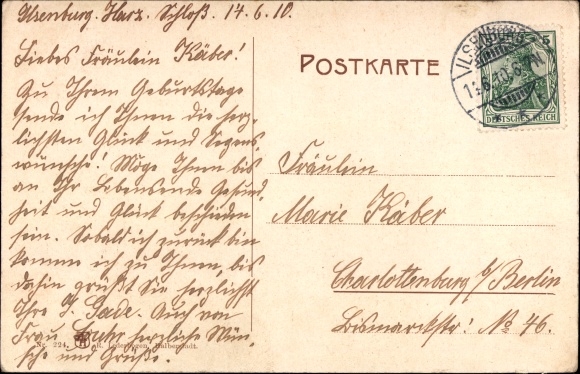 Ilsenburg. Harz. Schloß. 14.6.10.
Liebes Fräulein Käber!
Zu Ihrem Geburtstage
sende ich Ihnen die herz-
lichsten Glück und Segens-
wünsche! Möge Ihnen bis
an Ihr Lebensende Gesund-
heit und Glück beschieden
sein. Sobald ich zurück bin
komme ich zu Ihnen, bis
dahin grüßt Sie herzlichst
Ihre Auch von
Frau herzliche Wün-
sche und Grüße.
Nr. 224. Halberstadt.
POSTKARTE
ILSENBURG
14.6.10.
DEUTSCHES REICH
5
Fräulein
Marie Käber
Charlottenburg b/Berlin
Bismarckstr: No 46.